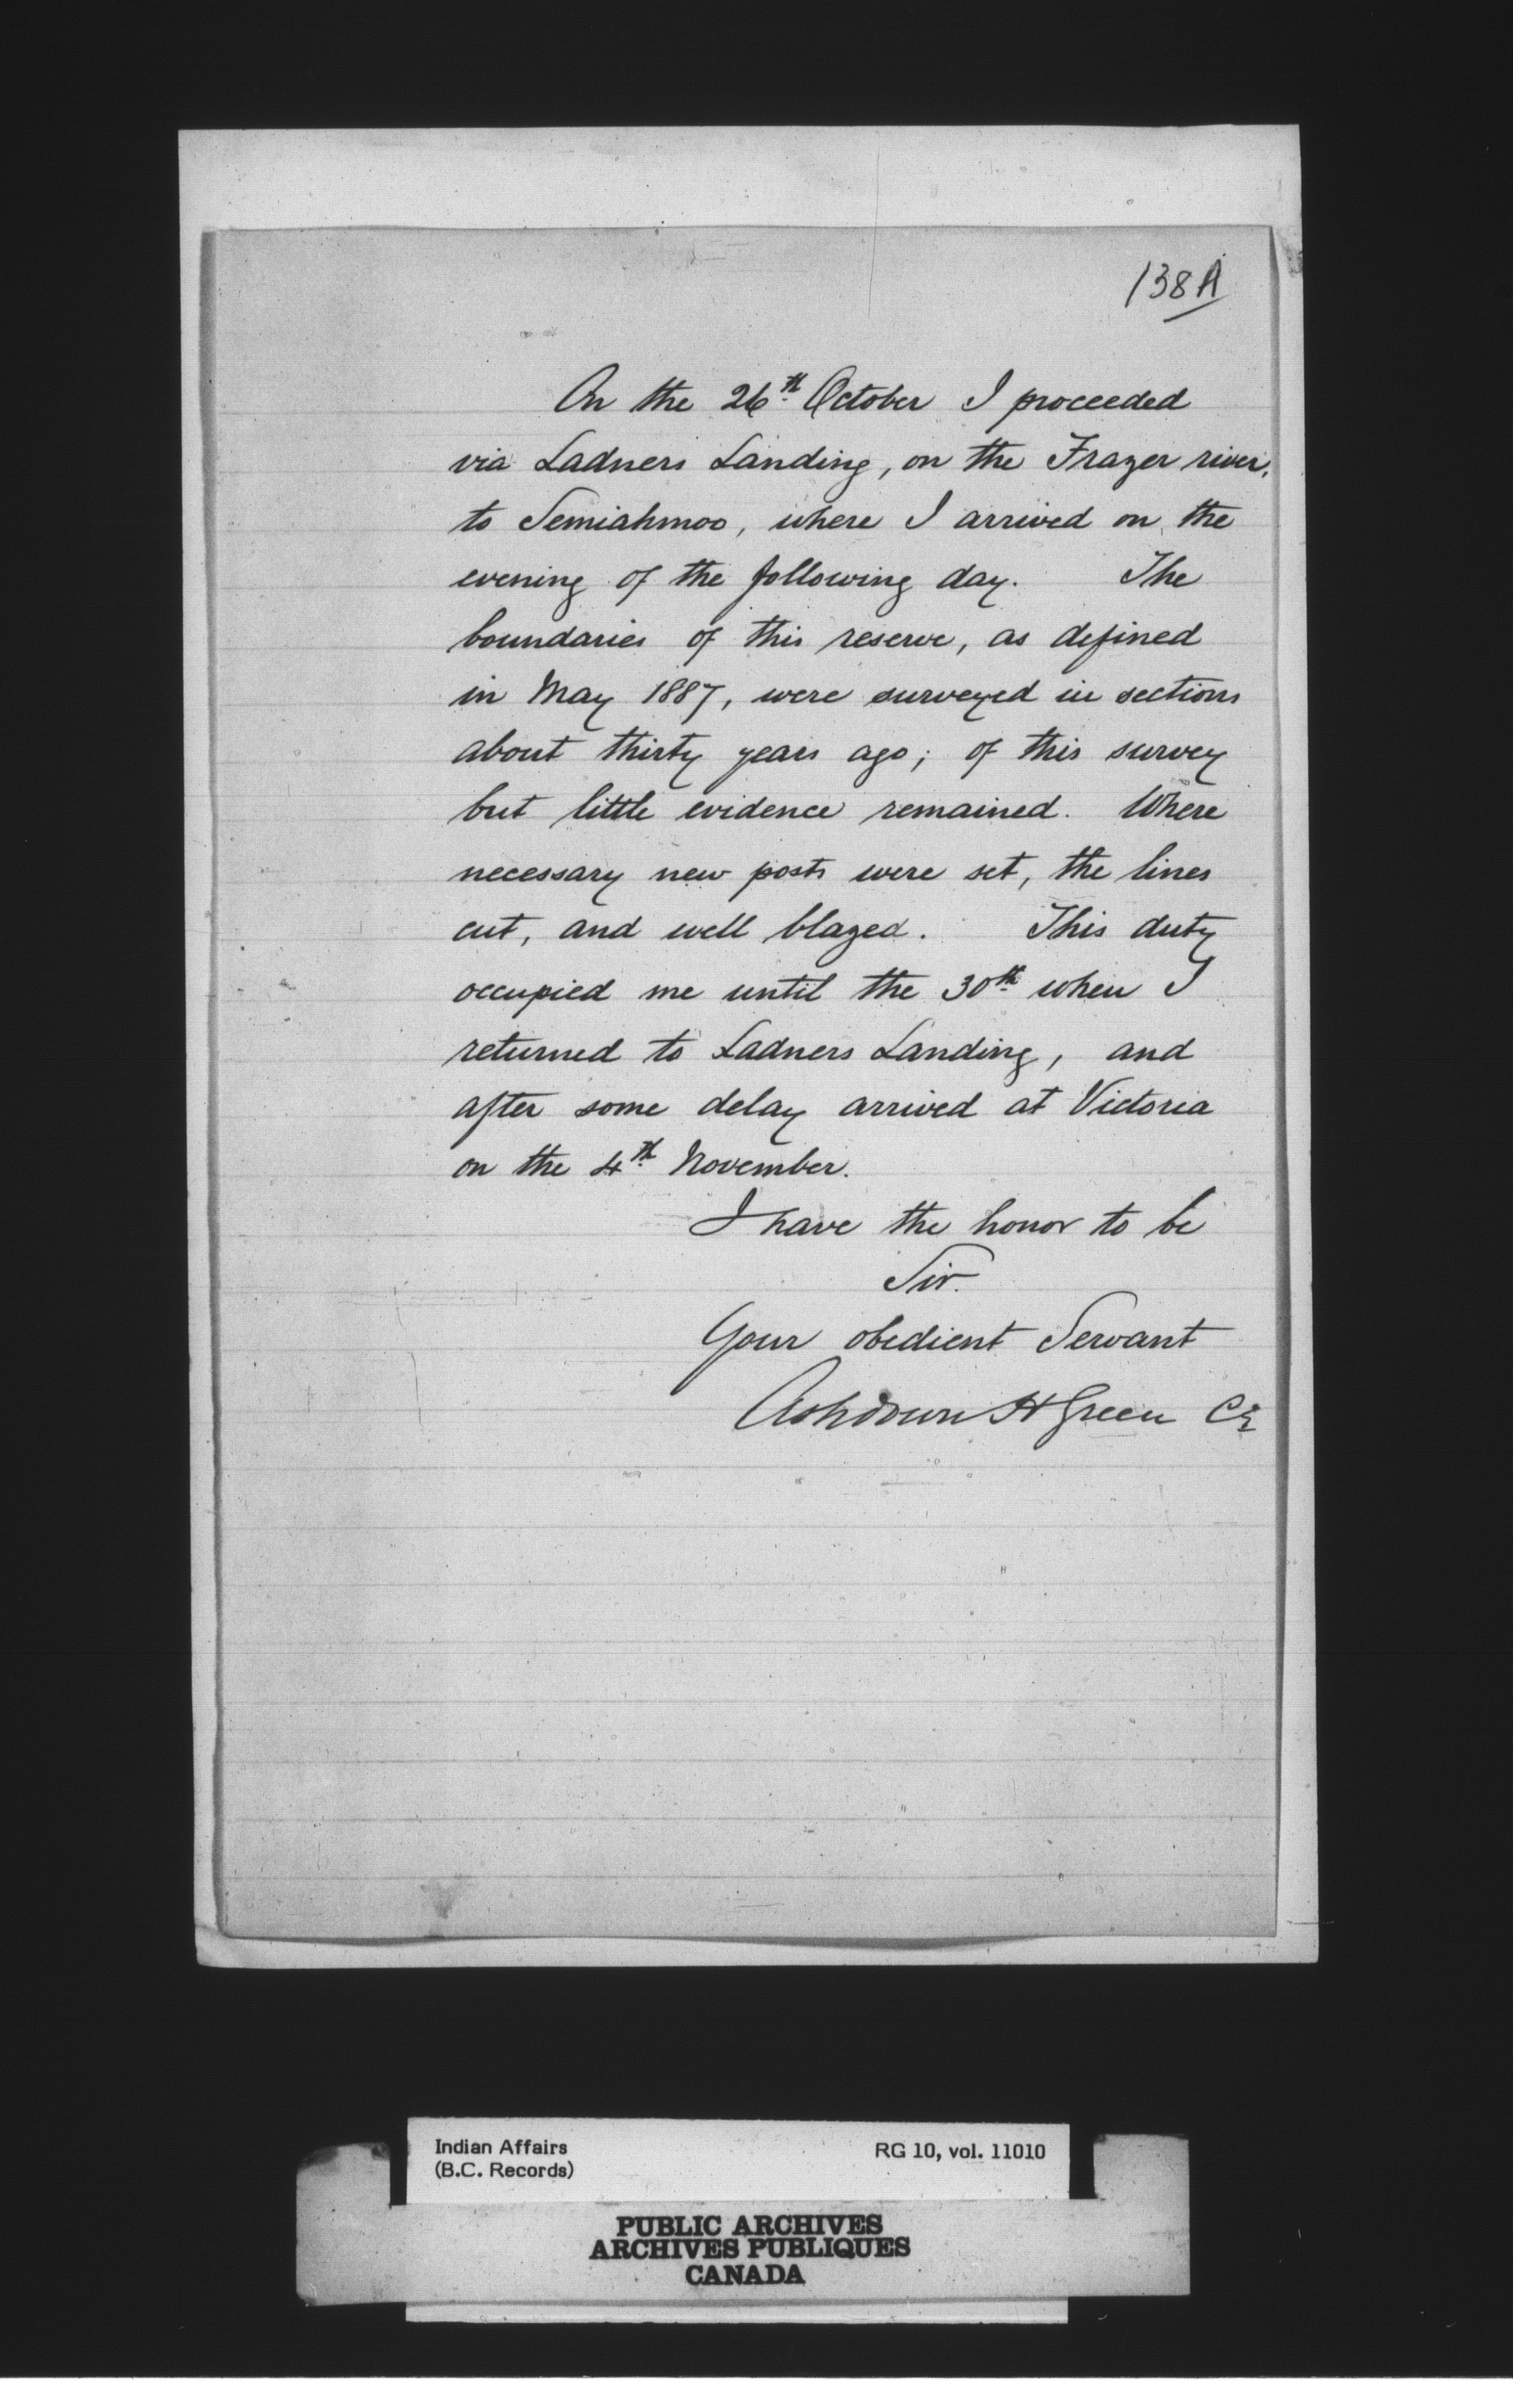 138A
On the 26th October I proceeded
via Ladners Landing, on the Frazer river,
to Semiahmoo, where I arrived on the
evening of the following day. The
boundaries of this reserve, as defined
in May 1887, were surveyed in sections
about thirty years ago; of this survey
but little evidence remained. Where
necessary new posts were set, the lines
cut, and well blazed. This duty
occupied me until the 30th when I
returned to Ladners Landing, and
after some delay arrived at Victoria
on the 4th November.
I have the honor to be
Sir.
Your obedient Servant
Ashdown H Green CE
Indian Affairs RG 10, vol. 11010
(B.C. Records)
PUBLIC ARCHIVES
ARCHIVES PUBLIQUES
CANADA